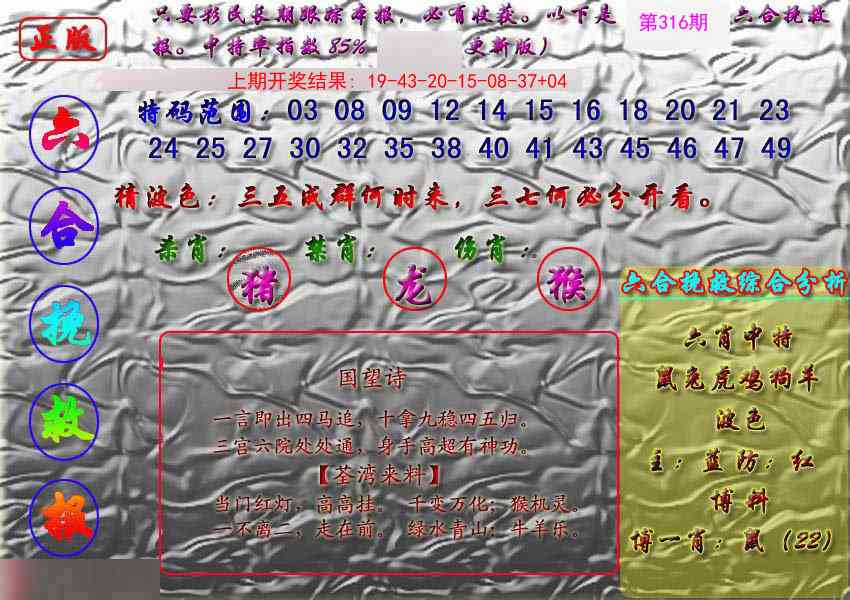 正版
只要彩民长期跟踪本报，必有收获。以下是
第316期
六合挽救
报。中特率指数85%
更新版）
上期开奖结果: 19-43-20-15-08-37+04
特码范围：03 08 09 12 14 15 16 18 20 21 23
24 25 27 30 32 35 38 40 41 43 45 46 47 49
猜波色：三五成群何时来，三七何必分开看。
杀肖： 禁肖： 伤肖：
猪 龙 猴
六
合
挽
救
报
国望诗
一言即出四马追，十拿九稳四五归。
三宫六院处处通，身手高超有神功。
【荃湾来料】
当门红灯，高高挂。 千变万化；猴机灵。
一不离二，走在前。 绿水青山；牛羊乐。
六合挽救综合分析
六肖中特
鼠兔虎鸡狗羊
波色
主：蓝防：红
博料
博一肖：鼠（22）